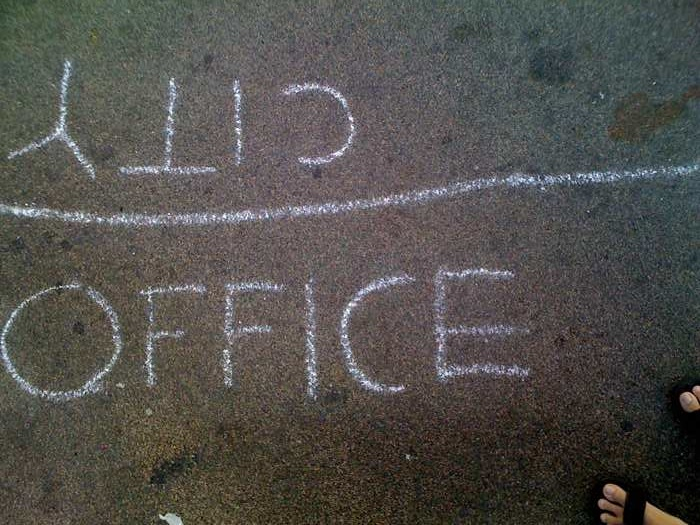 CITY
OFFICE